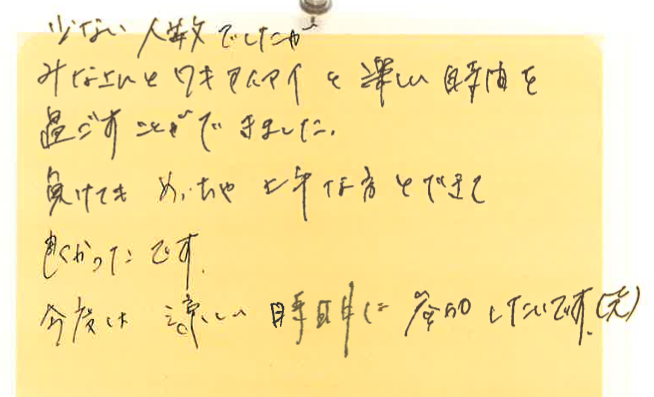 少ない人数でしたが
みなさんとワキアイアイと楽しい時間を
過ごすことができました。
負けてもめっちゃ上手な方とできて
良かったです。
今度は涼しい時期に参加したいです(笑)